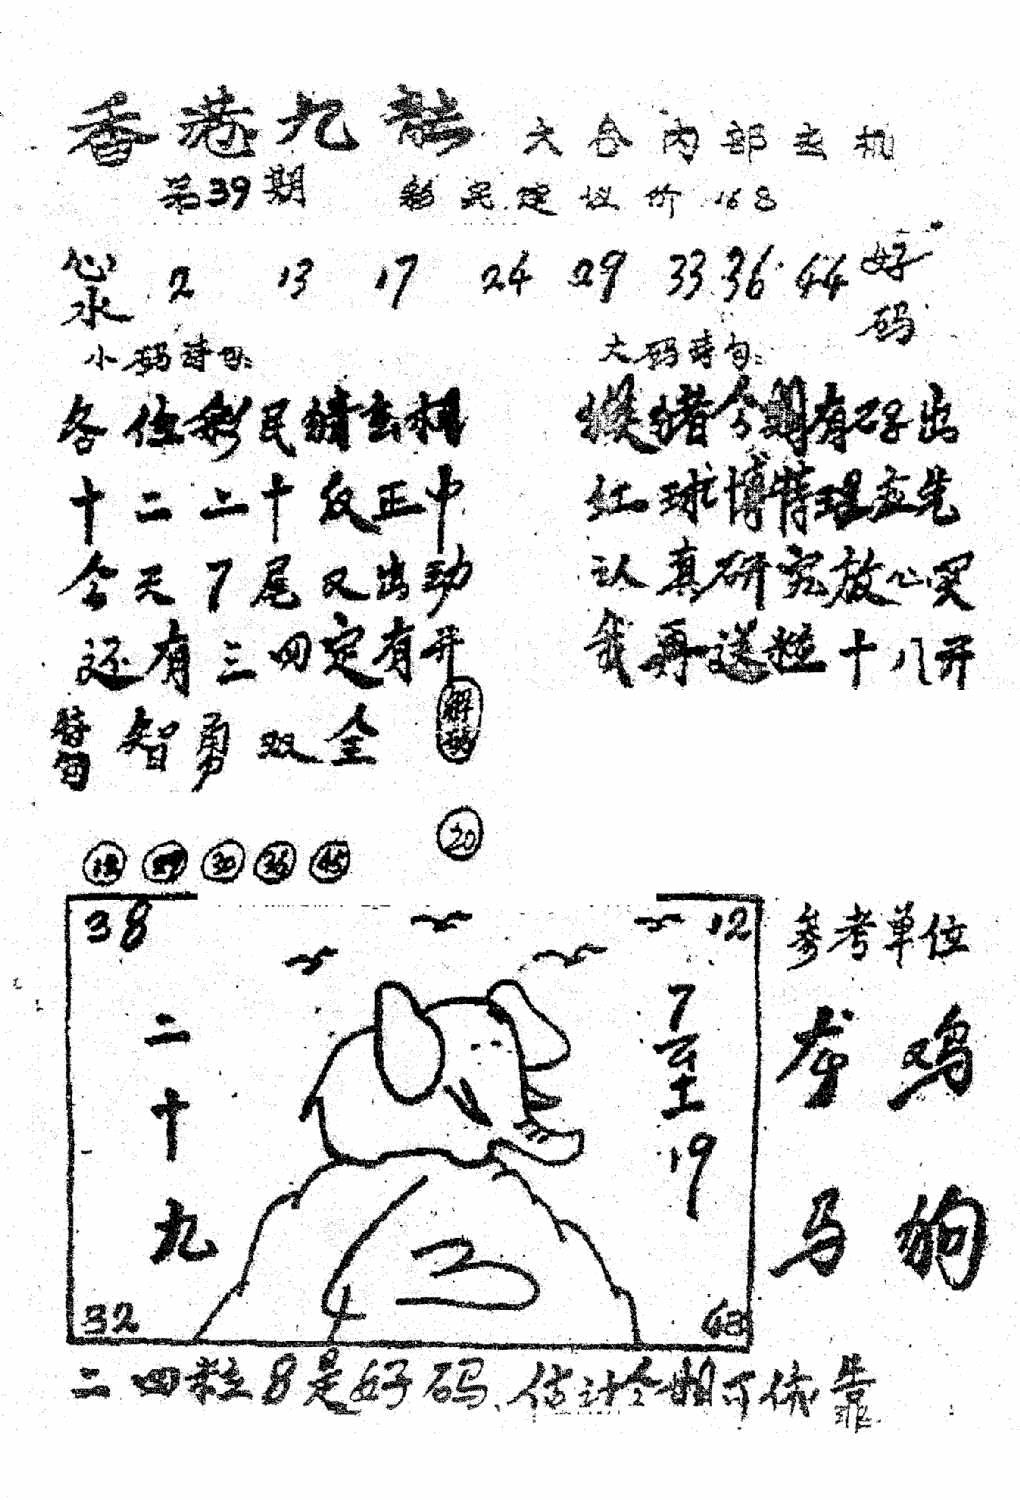 香港九龍 六合内部玄机
第39期 彩民建议价168
心水 2 13 17 24 29 33 36 44 好码
小码诗句: 大码诗句:
各位彩民猜玄机 猴猪今期有码出
十二二十反正中 红球博特理应先
今天7尾又出动 认真研究放心买
还有三四定有开 我再送粒十八开
智勇双全 解码
30 36 45 20
38 12 参考单位
二十九 7至19 龙 鸡
马 狗
32 43
二四粒8是好码 估计今期可依靠